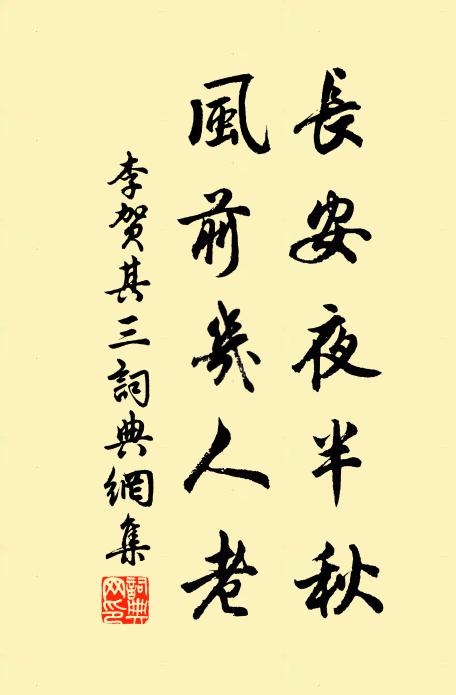 長安夜半秋
風前幾人老
李賀其三詞典網集
詞典
网印